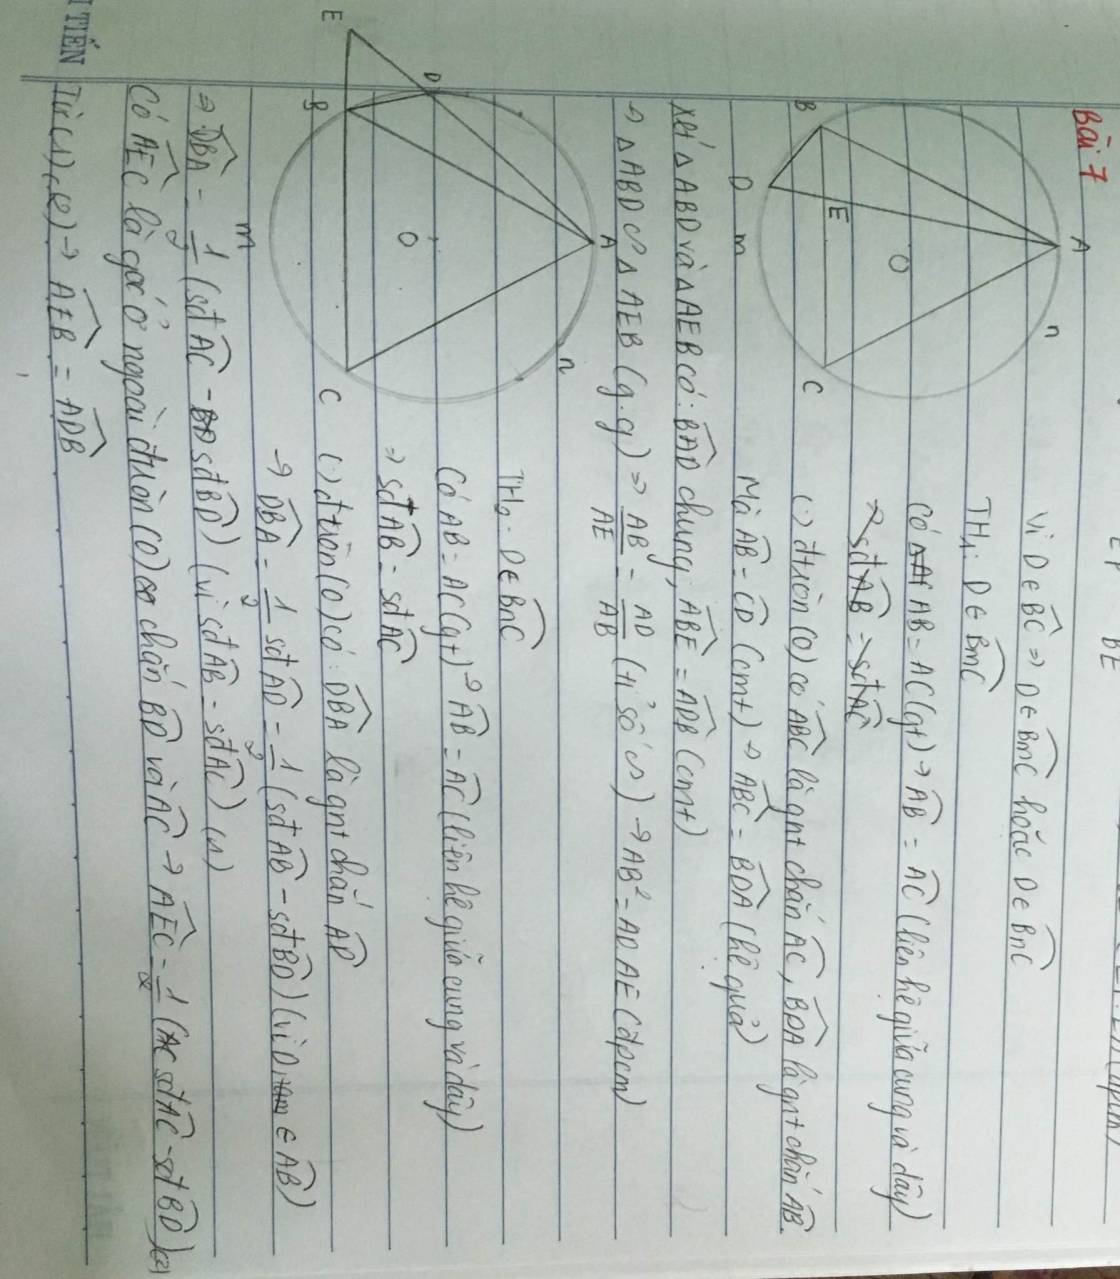 Bài 7
Vì D ∈ B͡C ⇒ D ∈ B͡mC hoặc D ∈ B͡nC
TH₁: D ∈ B͡mC
Có AB = AC (gt) → A͡B = A͡C (liên hệ giữa cung và dây)
→ sđ A͡B = sđ A͡C
(·) đtròn (O) có A͡BC là gnt chắn A͡C, B͡DA là gnt chắn A͡B
Mà A͡B = C͡D (cmt) → A͡BC = B͡DA (hệ quả)
Xét △ABD và △AEB có: B͡AD chung, A͡BE = A͡DB (cmt)
→ △ABD ∽ △AEB (g.g) ⇒ AB/AE = AD/AB (tỉ số ∽) → AB² = AD AE (đpcm)
TH₂: D ∈ B͡nC
Có AB = AC (gt) → A͡B = A͡C (liên hệ giữa cung và dây)
→ sđ A͡B = sđ A͡C
(·) đtròn (O) có: D͡BA là gnt chắn A͡D
→ D͡BA = 1/2 sđ A͡D = 1/2 (sđ A͡B - sđ B͡D) (vì D ∈ A͡B)
⇒ D͡BA = 1/2 (sđ A͡C - sđ B͡D) (vì sđ A͡B = sđ A͡C) (1)
Có A͡EC là góc ở ngoài đtròn (O) chắn B͡D và A͡C → A͡EC = 1/2 (sđ A͡C - sđ B͡D) (2)
Từ (1), (2) → A͡EB = A͡DB
A
n
O
B
E
C
D
m
A
n
D
O
E
B
C
m
TIẾN